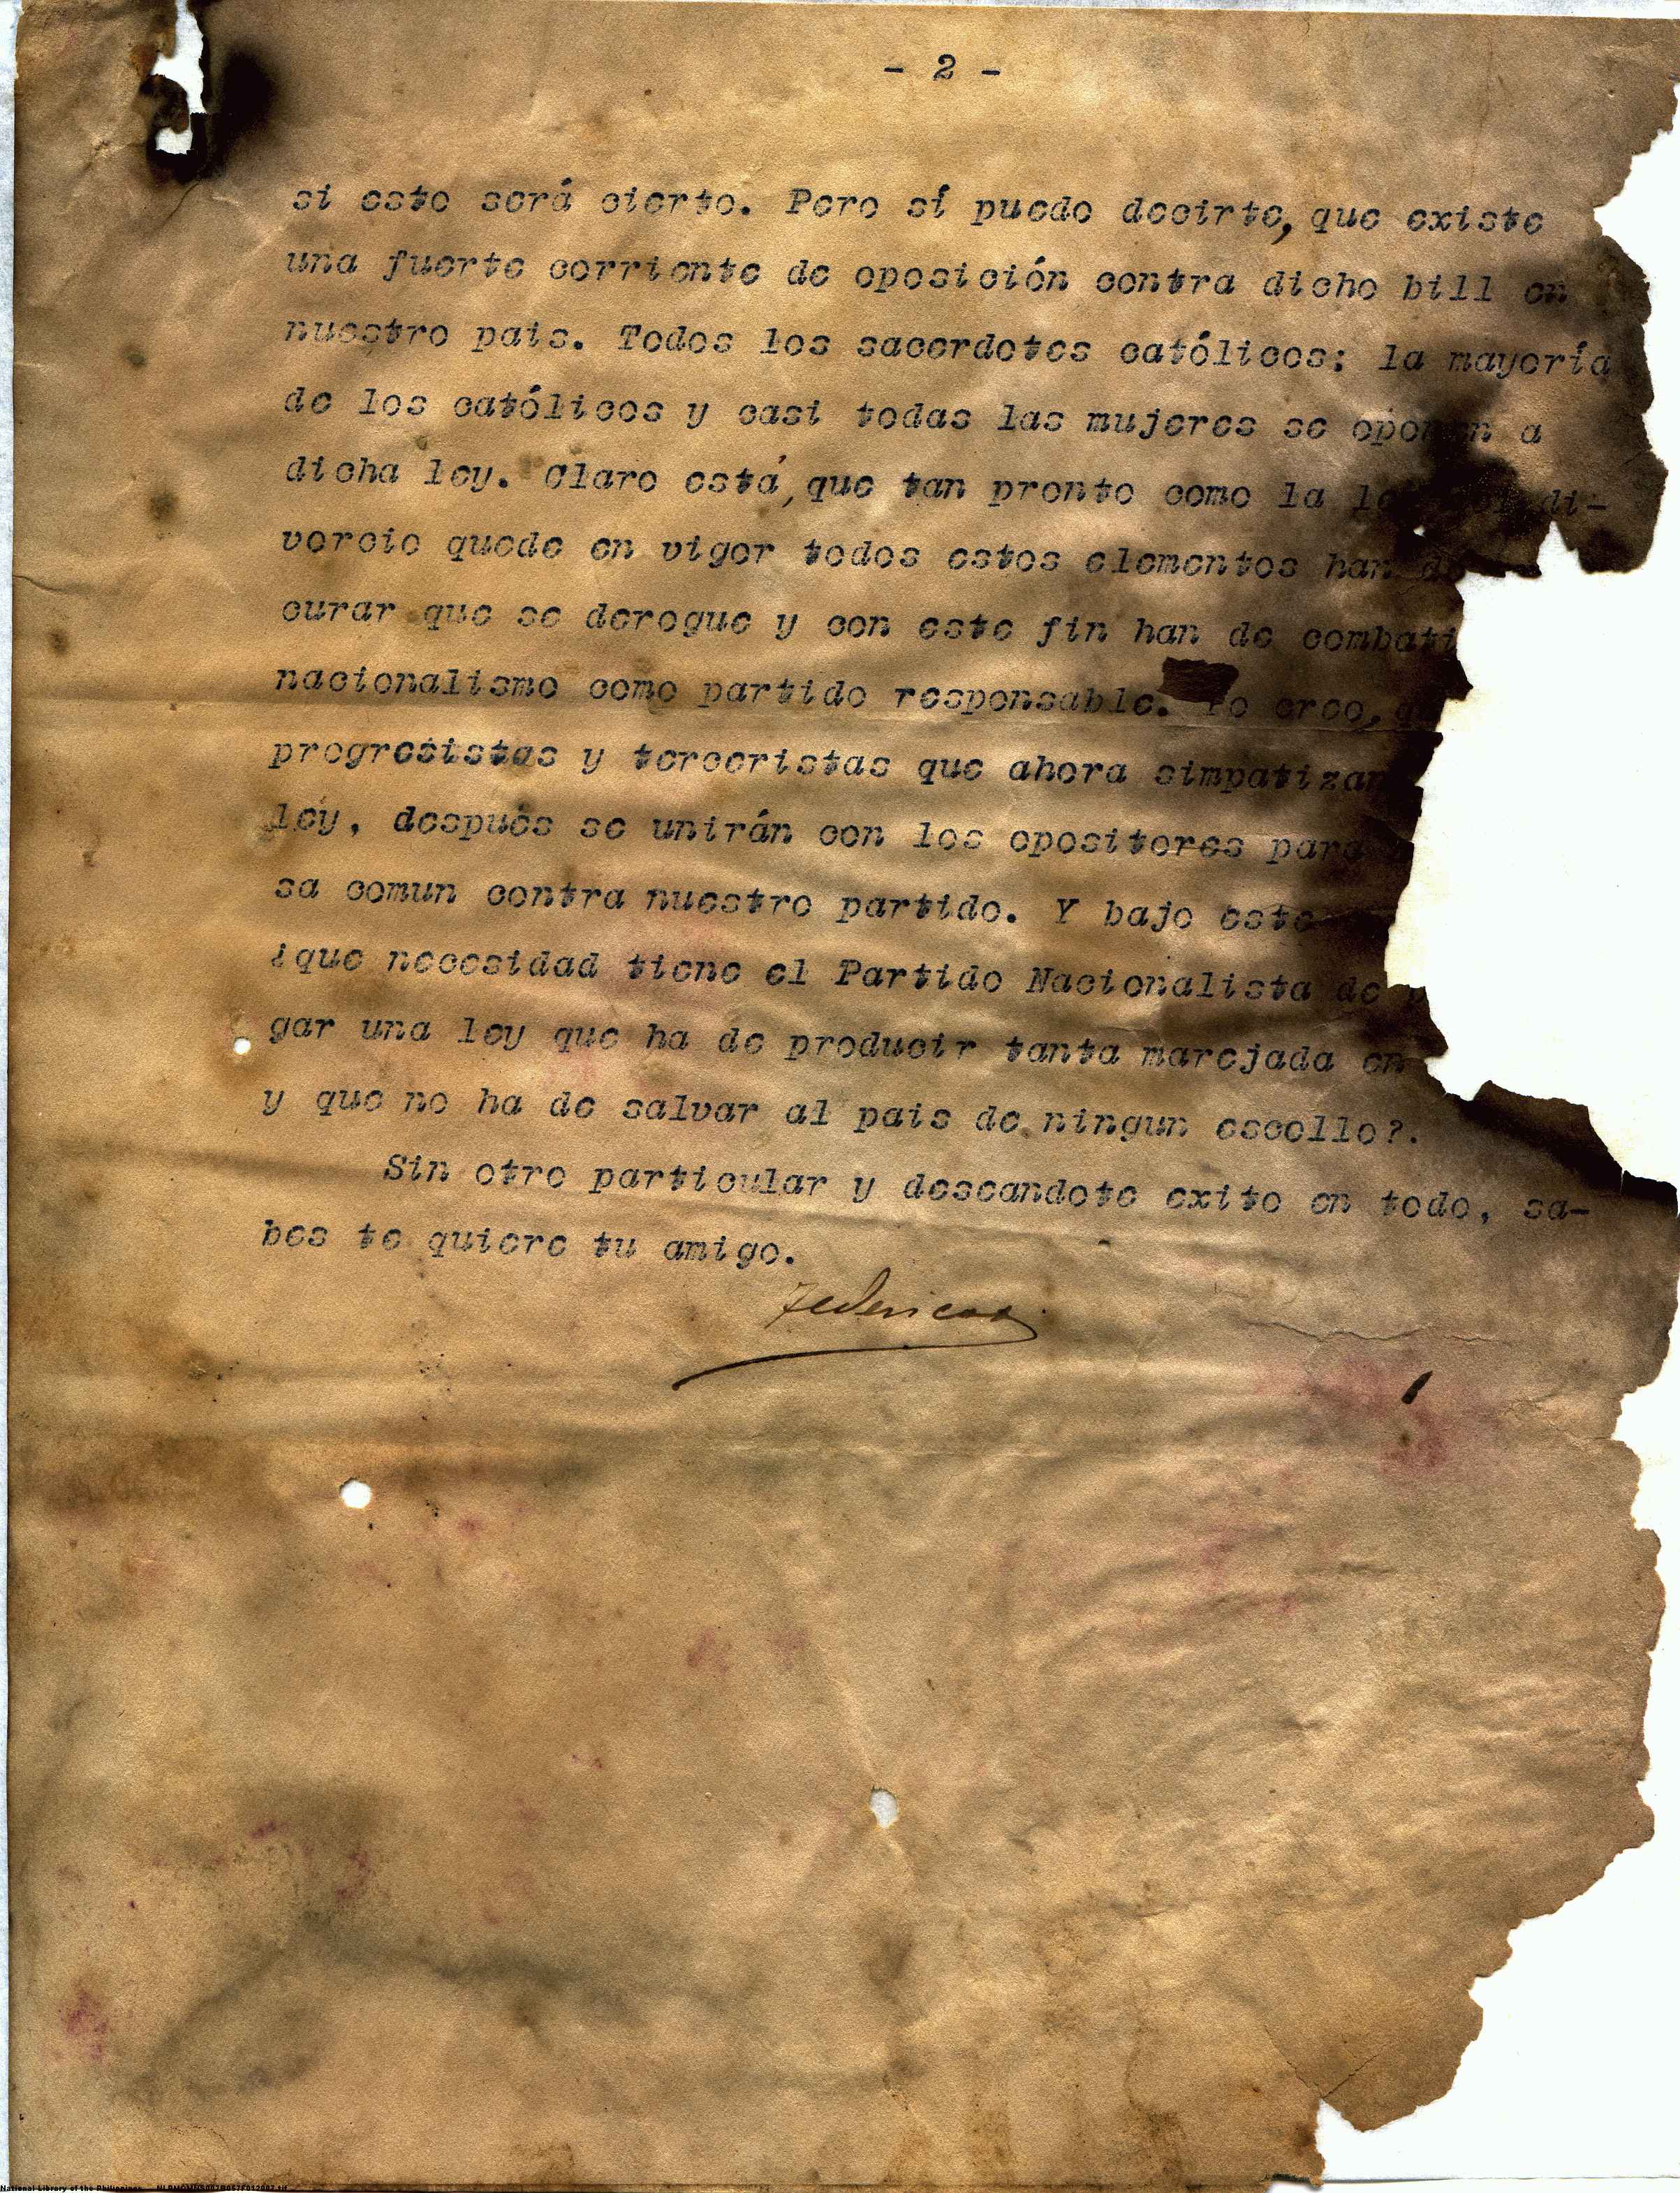 - 2 -
si esto será cierto. Pero sí puedo decirte, que existe
una fuerte corriente de oposición contra dicho bill en
nuestro pais. Todos los sacerdotes católicos; la mayoría
de los católicos y casi todas las mujeres se oponen a
dicha ley. Claro está, que tan pronto como la di-
vorcio quede en vigor todos estos elementos han
curar que se derogue y con este fin han de combati
nacionalismo como partido responsable. Yo creo,
progresistas y terceristas que ahora simpatizan
ley, después se unirán con los opositores para
sa comun contra nuestro partido. Y bajo este
¿que necesidad tiene el Partido Nacionalista de
gar una ley que ha de producir tanta marejada en
y que no ha de salvar al pais de ningun escollo?.
Sin otro particular y deseandote exito en todo, sa-
bes te quiere tu amigo.
Federico
National Library of the Philippines